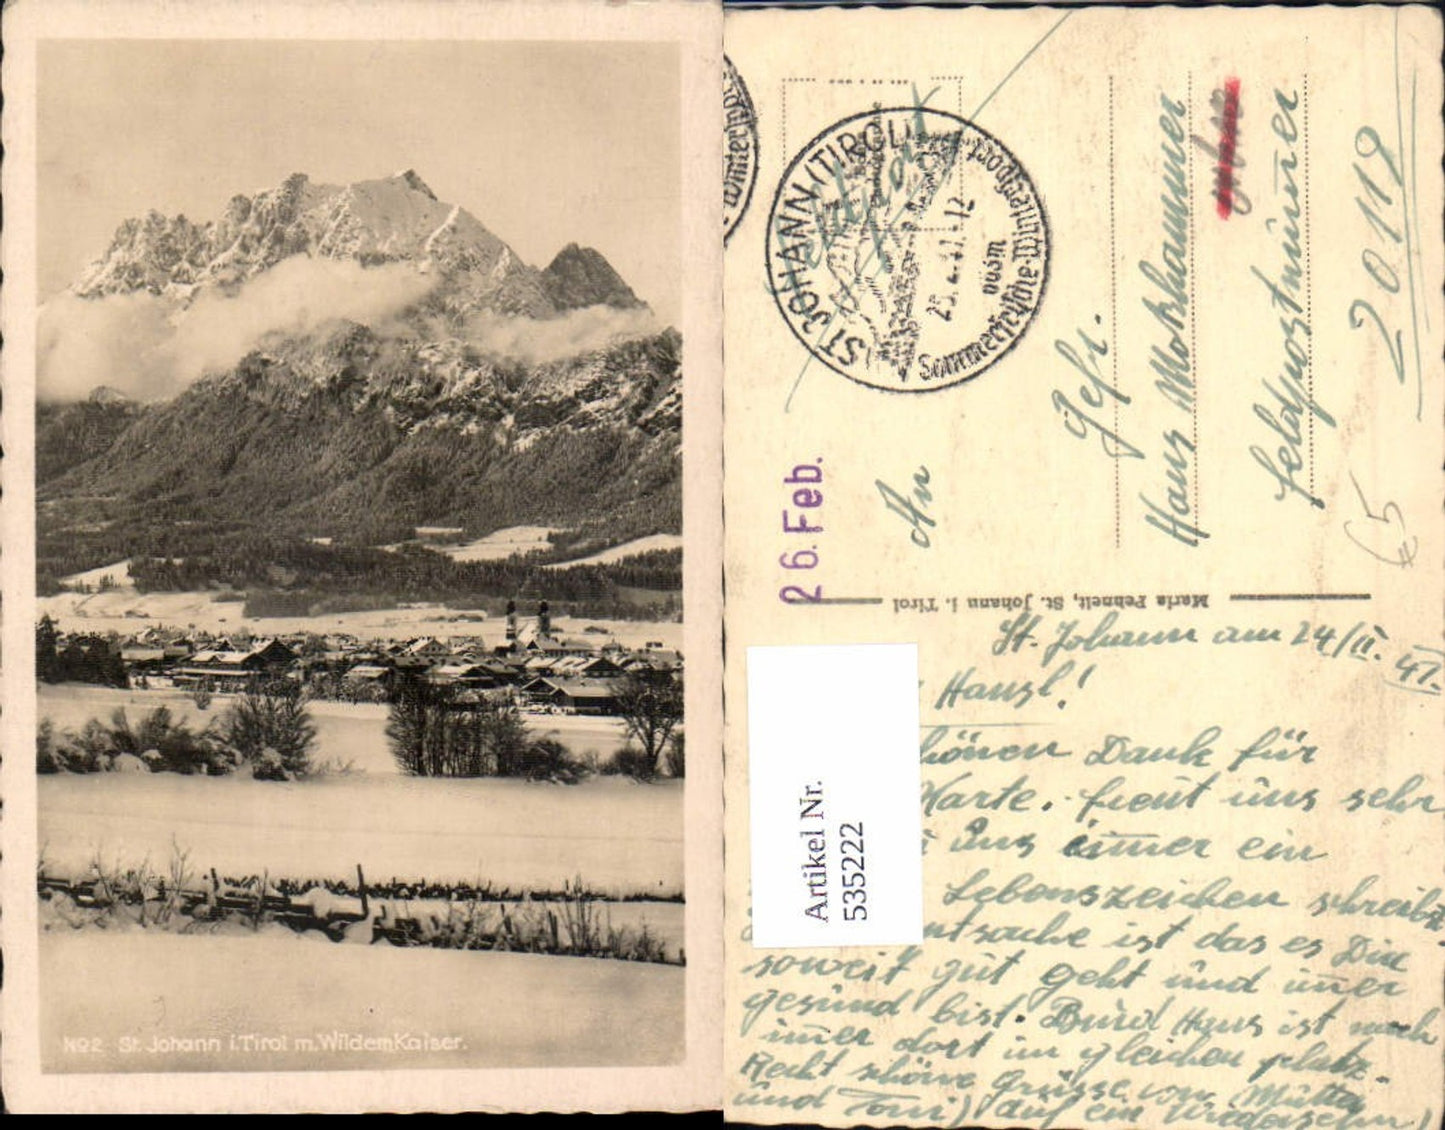 No2 St. Johann i. Tirol m. Wildem Kaiser.
ST. JOHANN (TIROL)
Sommerfrische-Wintersport
25. 2. 41. 12
26. Feb.
An
Gefr.
Hans
Feldpostnummer
20119
€5
Maria Pehneit, St. Johann i. Tirol
St. Johann am 24/II. 41.
Hansl!
hönen Dank für
Karte. freut uns sehr
uns immer ein
Lebenszeichen schreibst.
ntsache ist das es Dir
soweit gut geht und immer
gesund bist. Hans ist noch
immer dort im gleichen platz.
Recht schöne Grüsse von Mutter
und Toni) auf ein Wiedersehn!
Artikel Nr.
535222